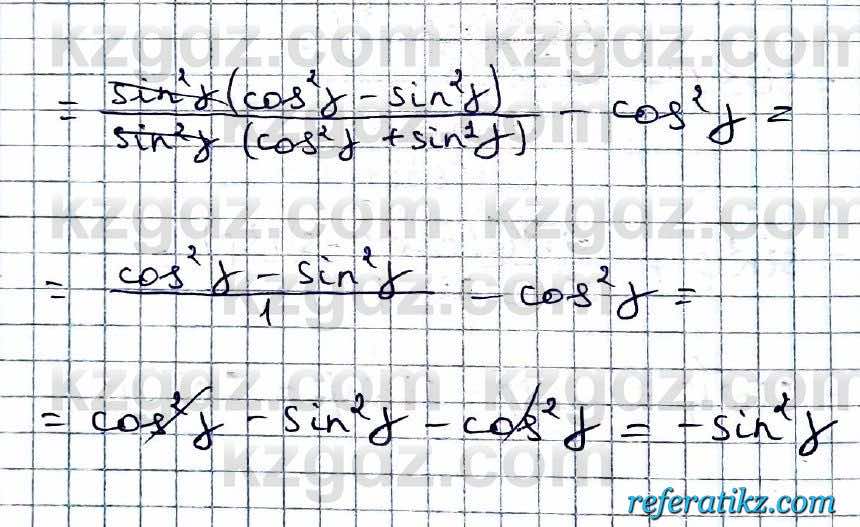 kzgdz.com kzgdz.com
= sin²γ(cos²γ - sin²γ) / sin²γ (cos²γ + sin²γ) - cos²γ =
kzgdz.com kzgdz.com
= cos²γ - sin²γ / 1 - cos²γ =
kzgdz.com kzgdz.com
= cos²γ - sin²γ - cos²γ = -sin²γ
kzgdz.com
referatikz.com